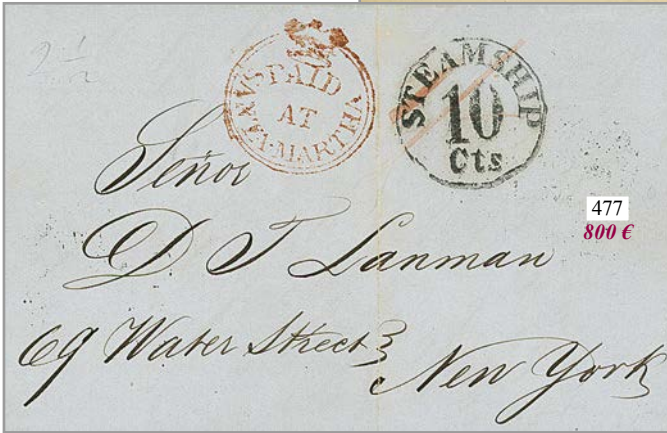 2 1/2
PAID
AT
SANTA-MARTHA
STEAMSHIP
10
Cts
Señor
D T Lanman
69 Water Street
New York
477
800 €